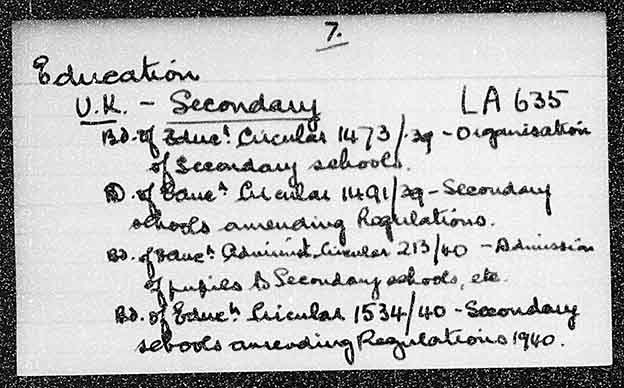 7.
Education
U.K. - Secondary LA 635
Bd. of Educn. Circular 1473/39 - Organisation
of Secondary schools.
Bd. of Educn. Circular 1491/39 - Secondary
schools amending Regulations.
Bd. of Educn. Administ. Circular 213/40 - Admission
of pupils to Secondary schools, etc.
Bd. of Educn. Circular 1534/40 - Secondary
schools amending Regulations 1940.